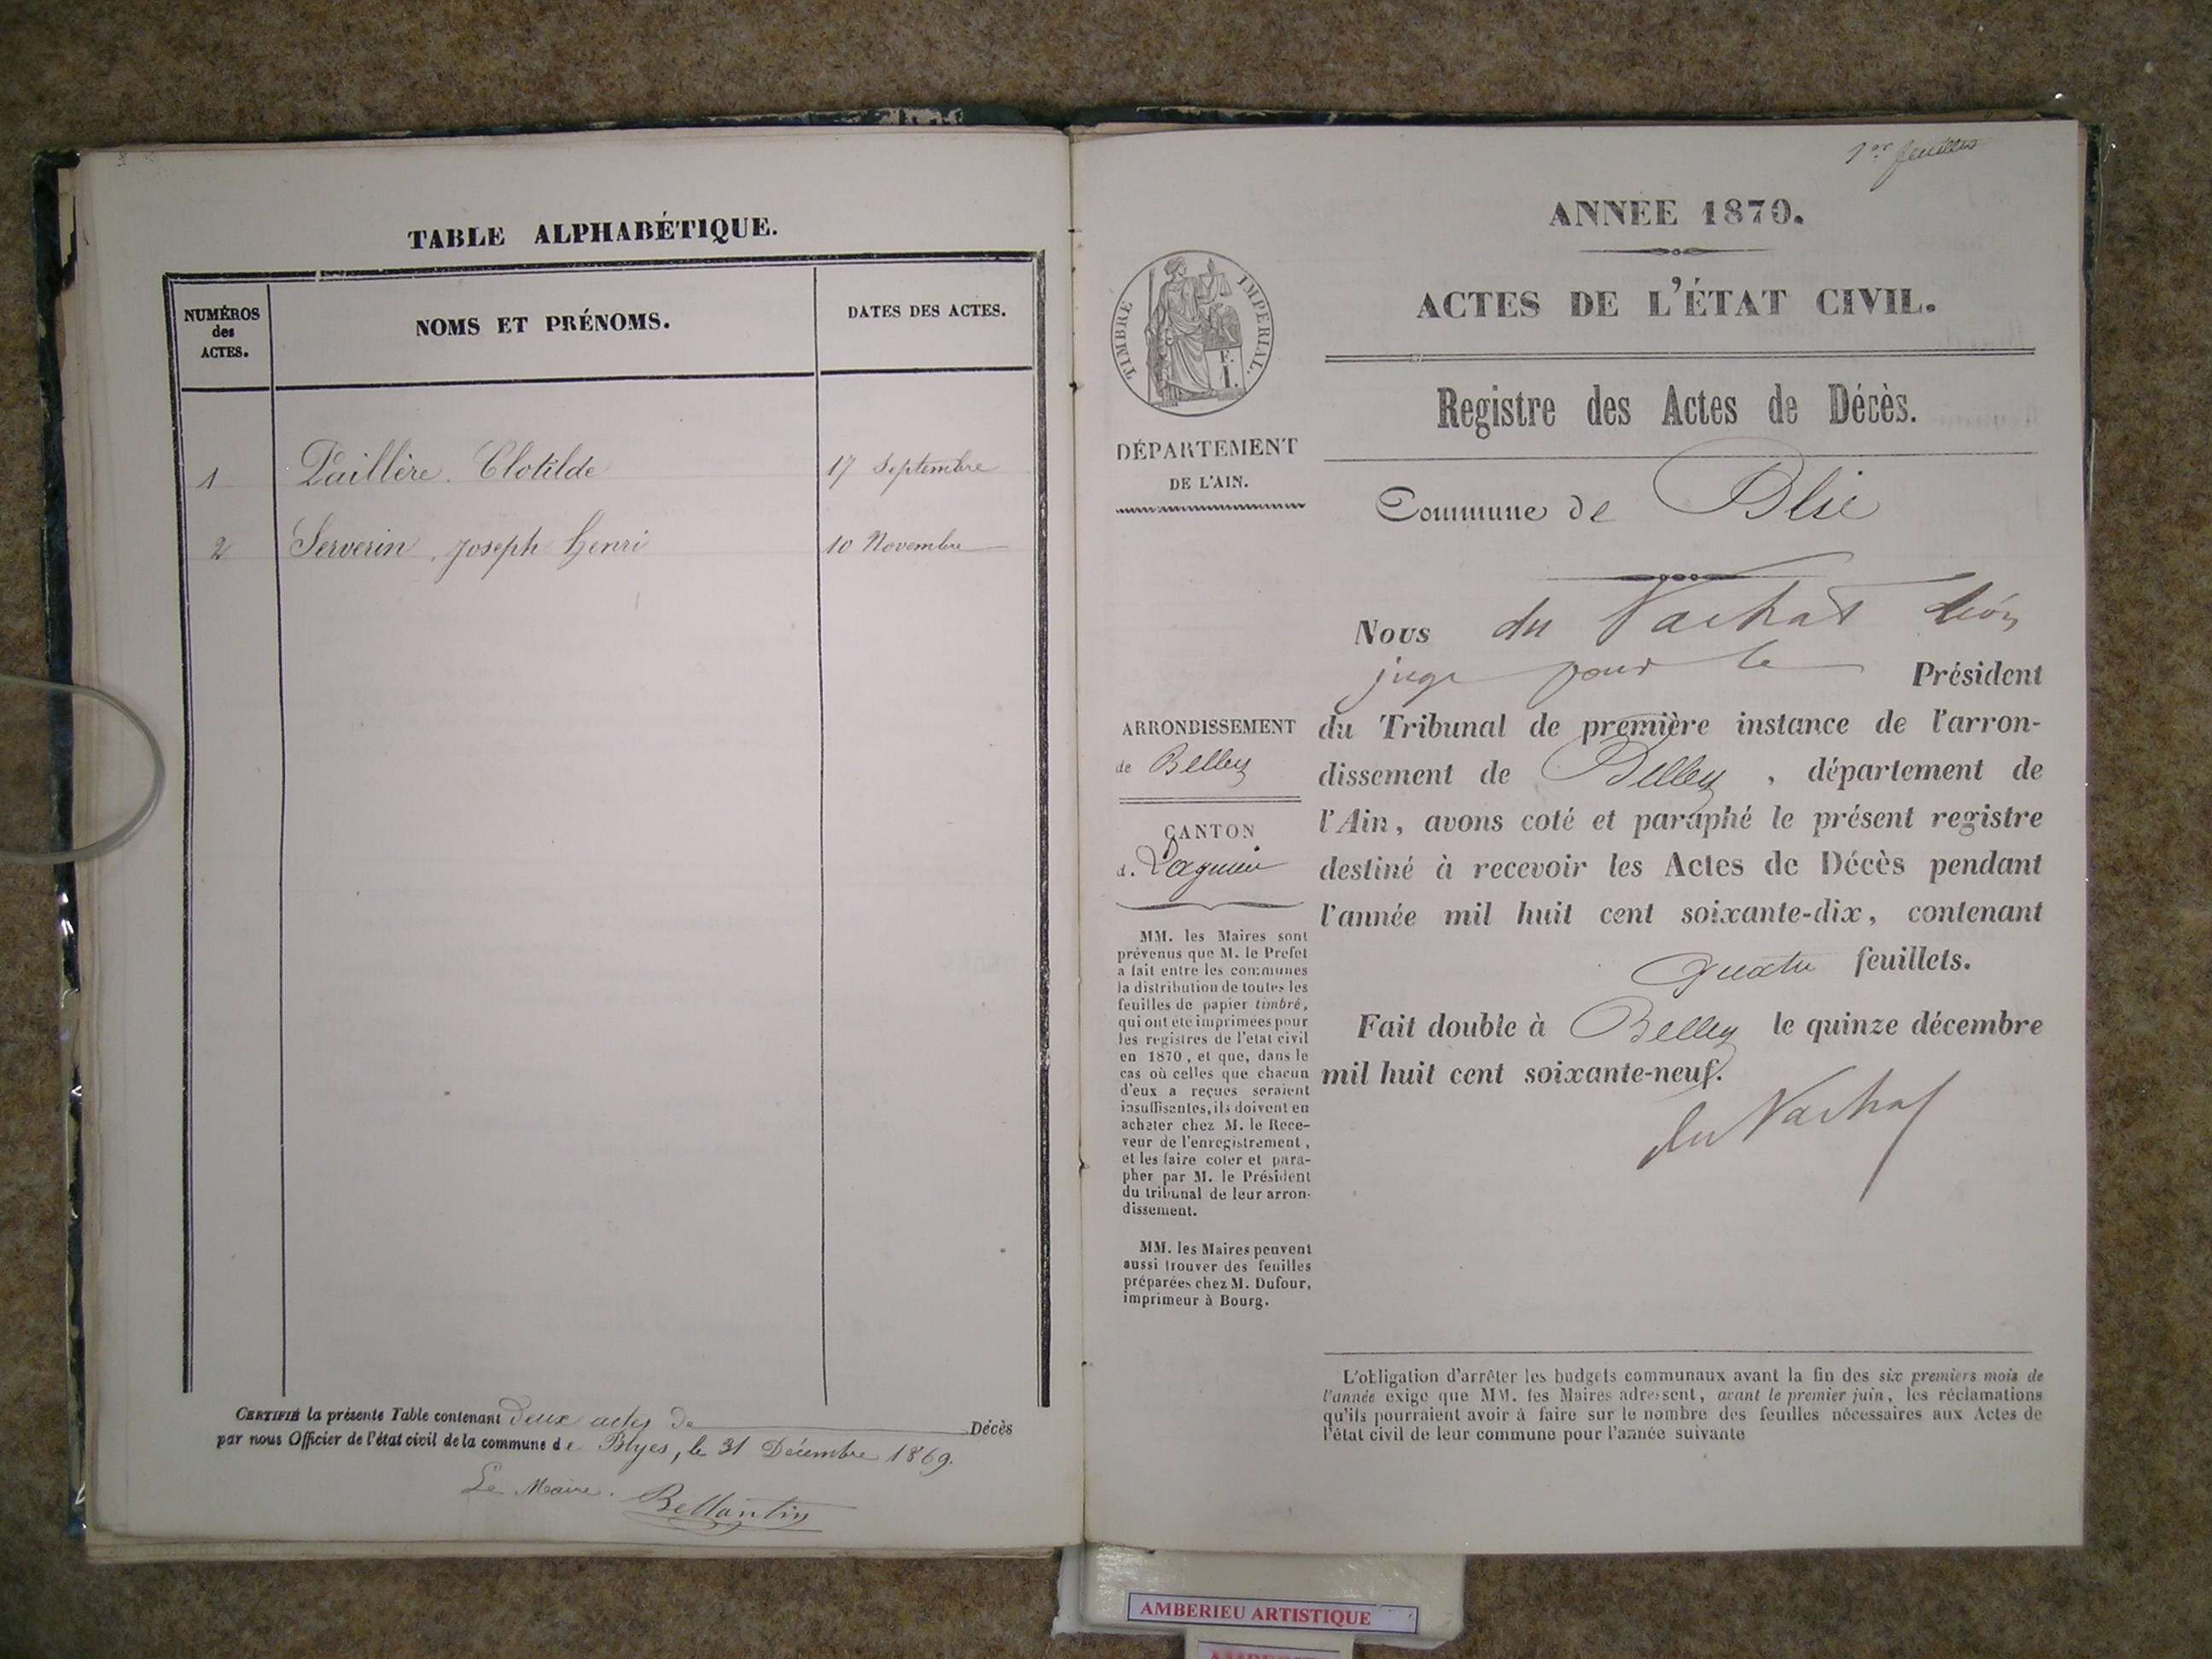 TABLE ALPHABÉTIQUE.
NUMÉROS
des
ACTES.
NOMS ET PRÉNOMS.
DATES DES ACTES.
1 Paillère. Clotilde 17 Septembre
2 Serverin, Joseph henri 10 Novembre
CERTIFIÉ la présente Table contenant deux actes de Décès
par nous Officier de l'état civil de la commune de Blyes, le 31 Décembre 1869.
Le Maire. Bellantin
1er feuillet
ANNÉE 1870.
ACTES DE L'ÉTAT CIVIL.
TIMBRE IMPERIAL.
F.
1.
Registre des Actes de Décès.
DÉPARTEMENT
DE L'AIN.
Commune de Blie
Nous du Vachat Léon
juge pour le Président
du Tribunal de première instance de l'arron-
dissement de Belley, département de
l'Ain, avons coté et paraphé le présent registre
destiné à recevoir les Actes de Décès pendant
l'année mil huit cent soixante-dix, contenant
quatre feuillets.
Fait double à Belley le quinze décembre
mil huit cent soixante-neuf.
du Vachat
ARRONDISSEMENT
de Belley
CANTON
d. Lagnieu
MM. les Maires sont
prévenus que M. le Prefet
a fait entre les communes
la distribution de toutes les
feuilles de papier timbré,
qui ont été imprimées pour
les registres de l'etat civil
en 1870, et que, dans le
cas où celles que chacun
d'eux a reçues seraient
insuffisantes, ils doivent en
acheter chez M. le Rece-
veur de l'enregistrement,
et les faire coter et para-
pher par M. le Président
du tribunal de leur arron-
dissement.
MM. les Maires peuvent
aussi trouver des feuilles
préparées chez M. Dufour,
imprimeur à Bourg.
L'obligation d'arrêter les budgets communaux avant la fin des six premiers mois de
l'année exige que MM. les Maires adressent, avant le premier juin, les réclamations
qu'ils pourraient avoir à faire sur le nombre des feuilles nécessaires aux Actes de
l'état civil de leur commune pour l'année suivante
AMBERIEU ARTISTIQUE